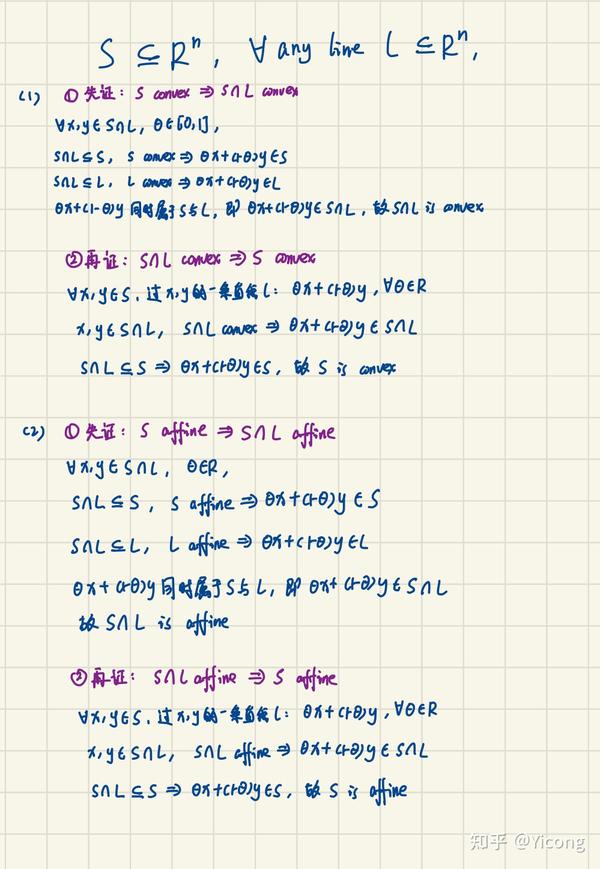 S ⊆ Rⁿ, ∀ any line L ⊆ Rⁿ,
(1) ① 先证: S convex ⇒ S∩L convex
∀x,y∈S∩L, θ∈[0,1],
S∩L⊆S, S convex ⇒ θx+(1-θ)y∈S
S∩L⊆L, L convex ⇒ θx+(1-θ)y∈L
θx+(1-θ)y 同时属于S与L, 即 θx+(1-θ)y∈S∩L, 故S∩L is convex
②再证: S∩L convex ⇒ S convex
∀x,y∈S, 过x,y的一条直线L: θx+(1-θ)y, ∀θ∈R
x,y∈S∩L, S∩L convex ⇒ θx+(1-θ)y∈S∩L
S∩L⊆S ⇒ θx+(1-θ)y∈S, 故 S is convex
(2) ① 先证: S affine ⇒ S∩L affine
∀x,y∈S∩L, θ∈R,
S∩L⊆S, S affine ⇒ θx+(1-θ)y∈S
S∩L⊆L, L affine ⇒ θx+(1-θ)y∈L
θx+(1-θ)y同时属于S与L, 即 θx+(1-θ)y∈S∩L
故 S∩L is affine
②再证: S∩L affine ⇒ S affine
∀x,y∈S, 过x,y的一条直线L: θx+(1-θ)y, ∀θ∈R
x,y∈S∩L, S∩L affine ⇒ θx+(1-θ)y∈S∩L
S∩L⊆S ⇒ θx+(1-θ)y∈S, 故 S is affine
知乎 @Yicong